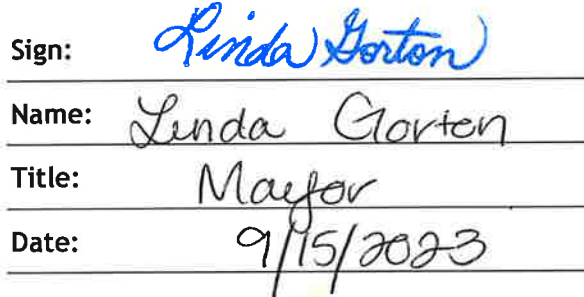 Sign: Linda Gorton
Name: Linda Gorton
Title: Mayor
Date: 9/15/2023